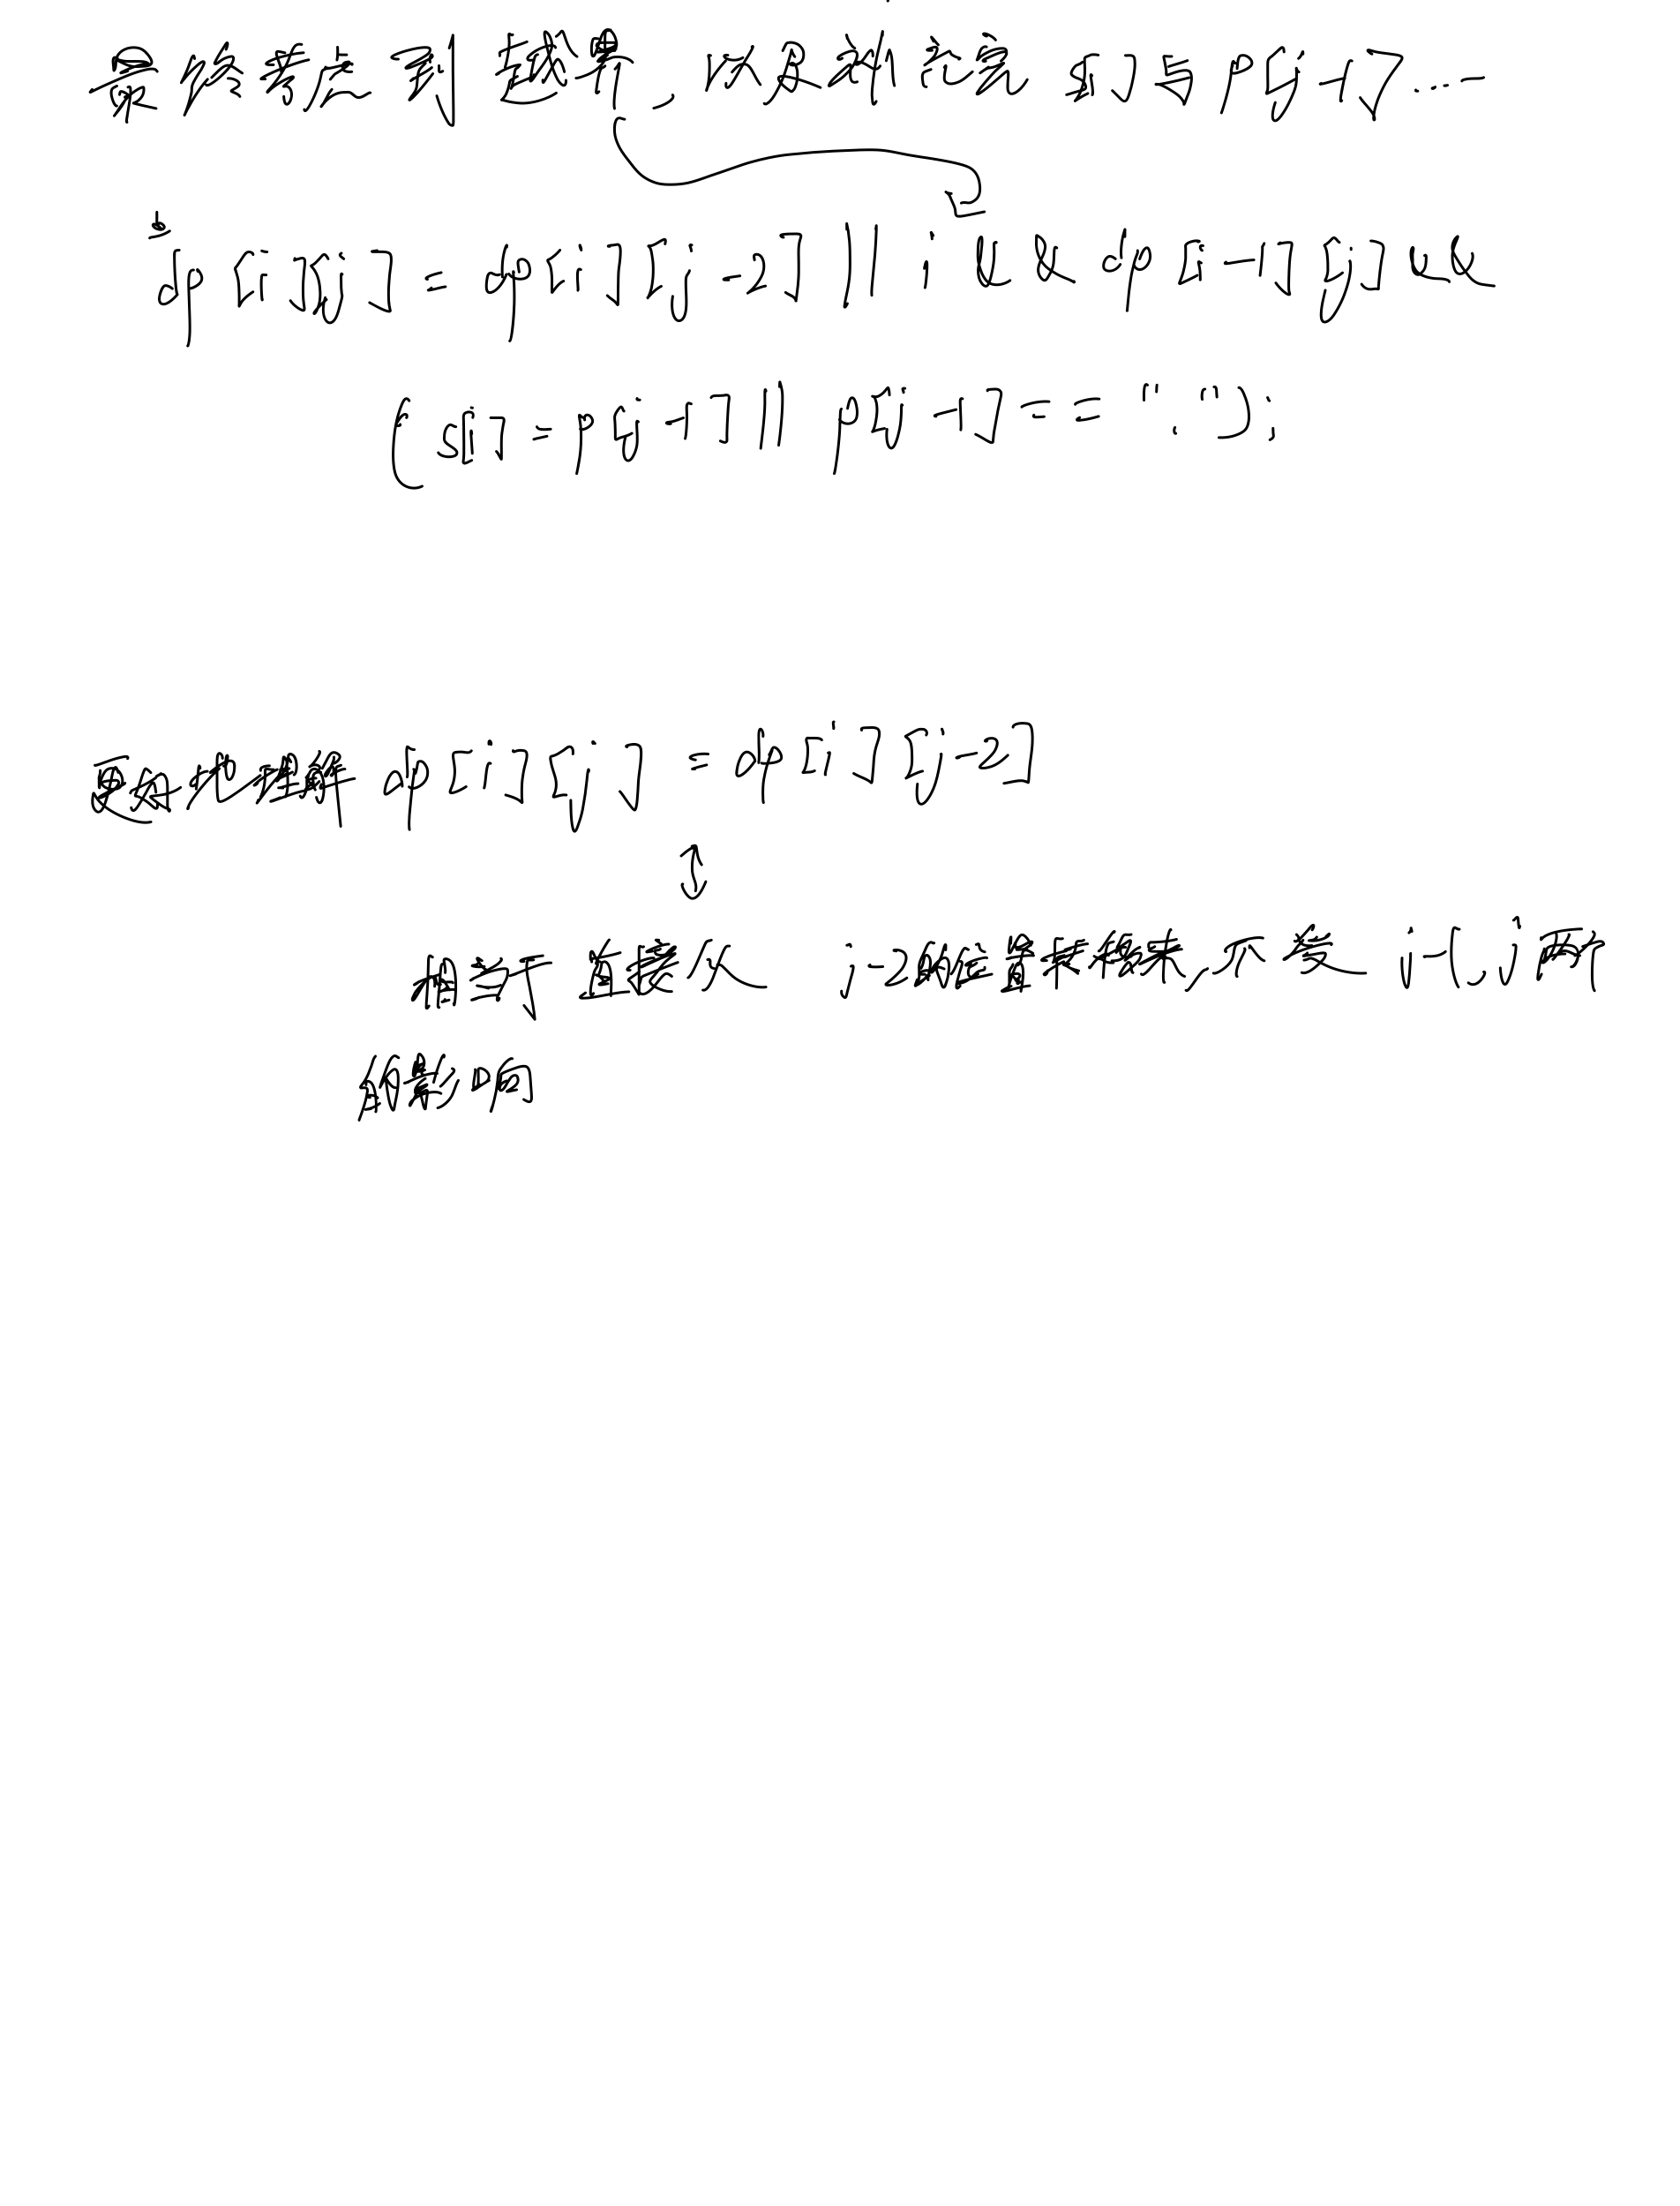 最终考虑到越界, 以及初完 s[i]与p[j-1]...
dp[i][j] = dp[i][j-2] || i && dp[i-1][j] &&
(s[i] = p[j-1] || p[j-1] == ".");
更好地理解 dp[i][j] = dp[i][j-2]
相当于直接从 j-2的位置转移来,不受 i-1, j 两
的影响